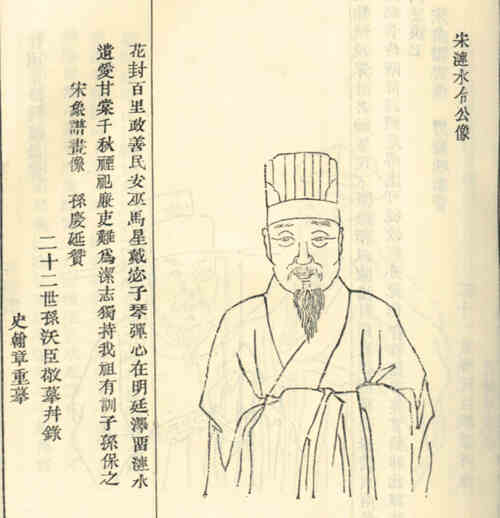 宋漣水令公像
花封百里政善民安巫馬星戴宓子琴彈心在明廷澤畱漣水
遺愛甘棠千秋禋祀廉吏難爲潔志獨持我祖有訓子孫保之
宋象譜畫像　孫慶延贊
二十二世孫沃臣敬摹幷錄
史翰章重摹